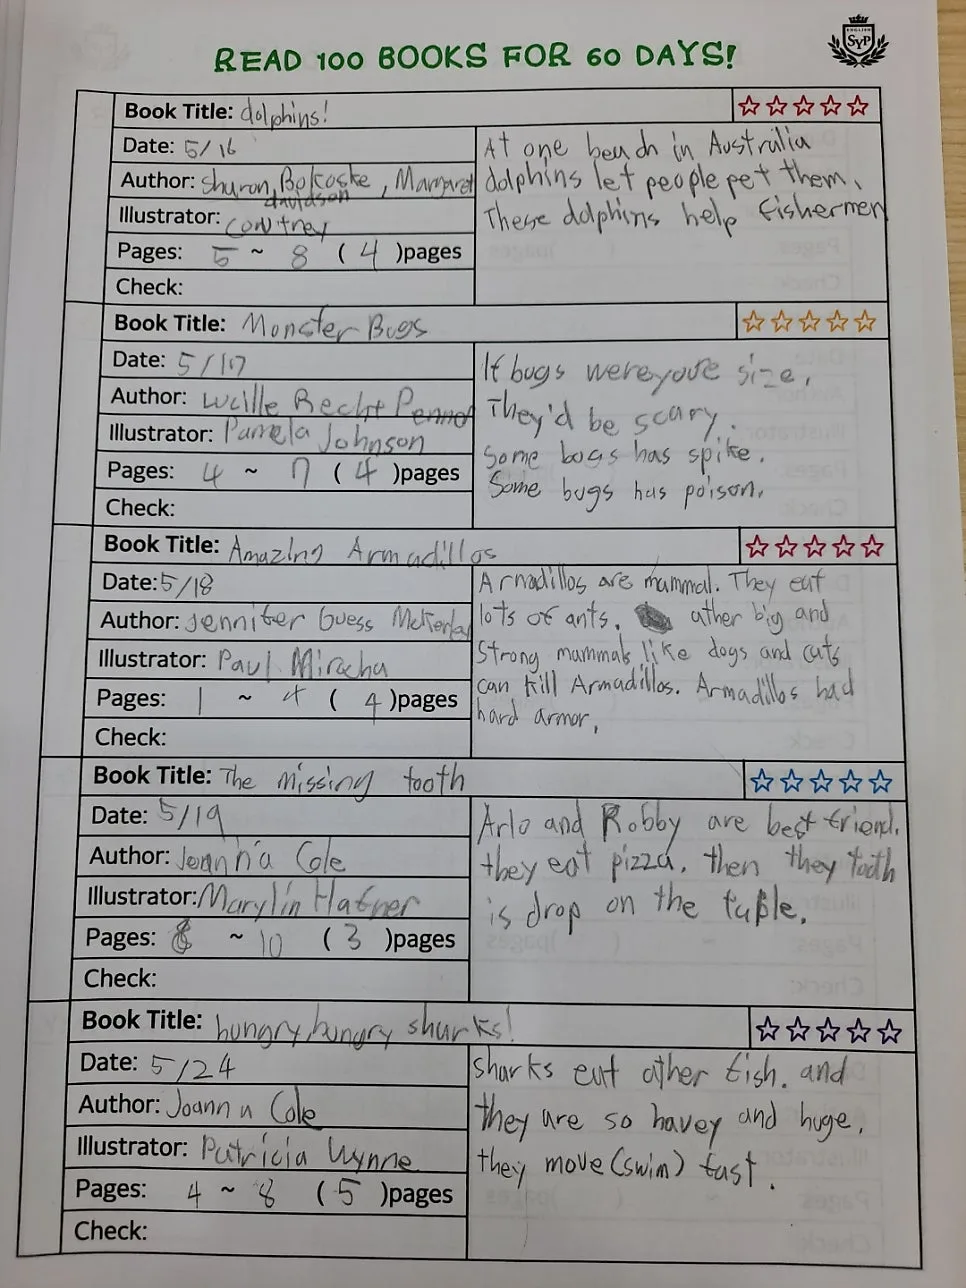 READ 100 BOOKS FOR 60 DAYS!
ENGLISH
SYP
Book Title: dolphins!
Date: 5/16
Author: Sharon, Bokoske, Margaret
davidson
Illustrator: courtney
Pages: 5 ~ 8 ( 4 )pages
Check:
At one beach in Australia
dolphins let people pet them.
These dolphins help fishermen
Book Title: Monster Bugs
Date: 5/17
Author: Lucille Recht Penner
Illustrator: Pamela Johnson
Pages: 4 ~ 7 ( 4 )pages
Check:
If bugs were youre size,
They'd be scary.
Some bugs has spike.
Some bugs has poison.
Book Title: Amazing Armadillos
Date: 5/18
Author: Jennifer Guess McKerley
Illustrator: Paul Mirocha
Pages: 1 ~ 4 ( 4 )pages
Check:
Armadillos are mammal. They eat
lots of ants. other big and
Strong mammals like dogs and cats
can kill Armadillos. Armadillos had
hard armor.
Book Title: The missing tooth
Date: 5/19
Author: Joanna Cole
Illustrator: Marylin Hafner
Pages: 8 ~ 10 ( 3 )pages
Check:
Arlo and Robby are best friend.
they eat pizza. then they tooth
is drop on the table.
Book Title: hungry, hungry sharks!
Date: 5/24
Author: Joann a Cole
Illustrator: Patricia Wynne
Pages: 4 ~ 8 ( 5 )pages
Check:
sharks eat other fish. and
they are so havey and huge.
they move (swim) fast.